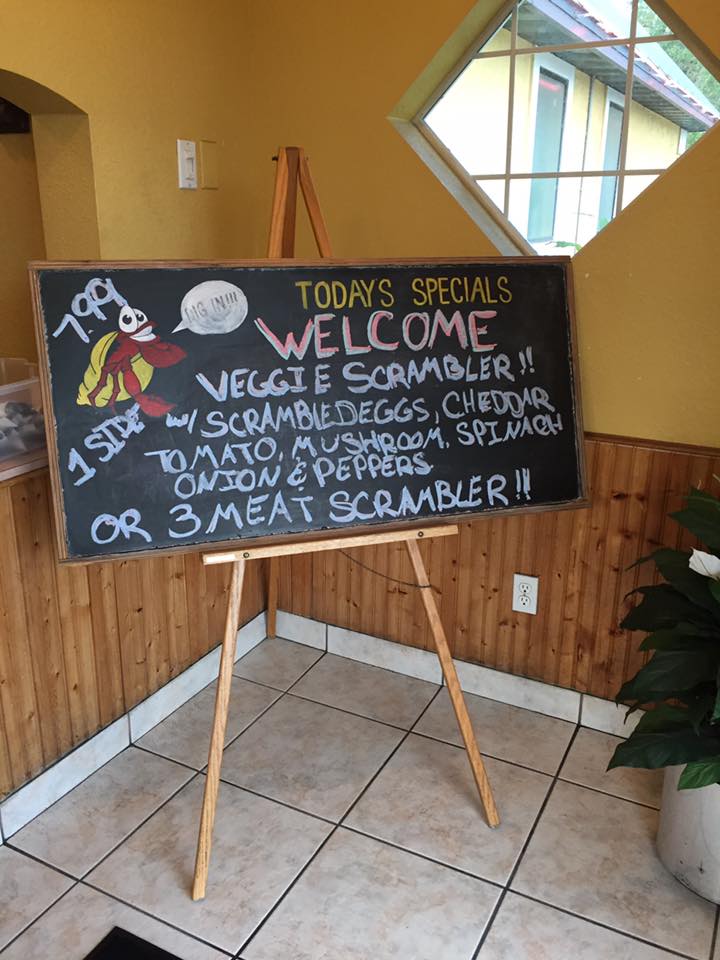 TODAYS SPECIALS
7.99!
DIG IN!!!
WELCOME
VEGGIE SCRAMBLER!!
1 SIDE
w/ SCRAMBLED EGGS, CHEDDAR
TOMATO, MUSHROOM, SPINACH
ONION & PEPPERS
OR 3 MEAT SCRAMBLER!!